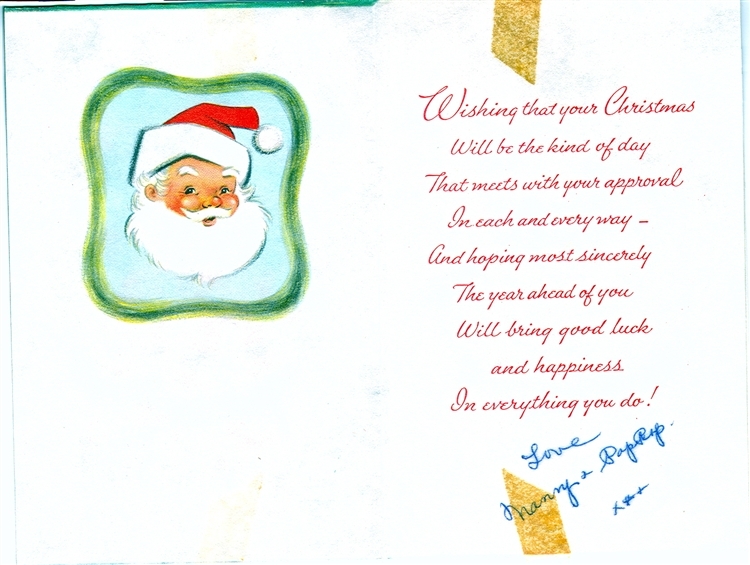 Wishing that your Christmas
Will be the kind of day
That meets with your approval
In each and every way –
And hoping most sincerely
The year ahead of you
Will bring good luck
and happiness
In everything you do!
Love
Nanny & PopPop.
x x x